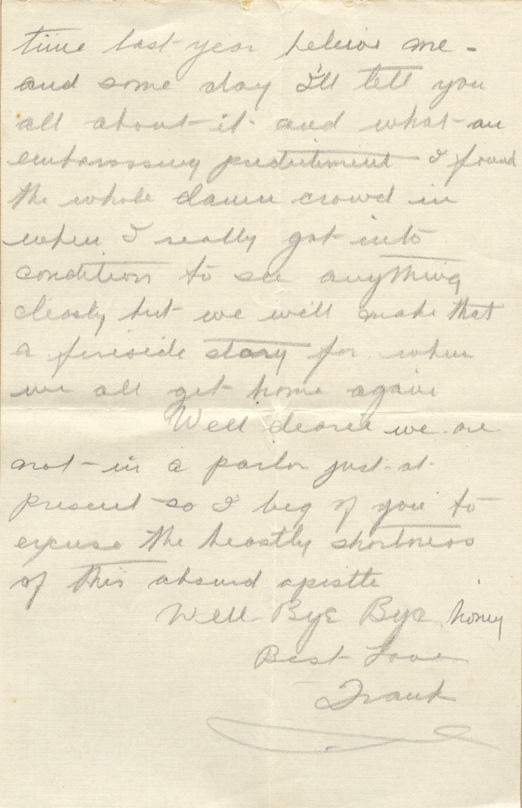 time last year believe me -
and some day I'll tell you
all about it and what an
embarassing predictiment I found
the whole damn crowd in
when I really got into
condition to see anything
clearly but we we'll make that
a fireside story for when
we all get home again
Well dearie we are
not in a parlor just at
present so I beg of you to
excuse the beastly shortness
of this absurd epistle
Well Bye Bye honey
Best Love
Frank